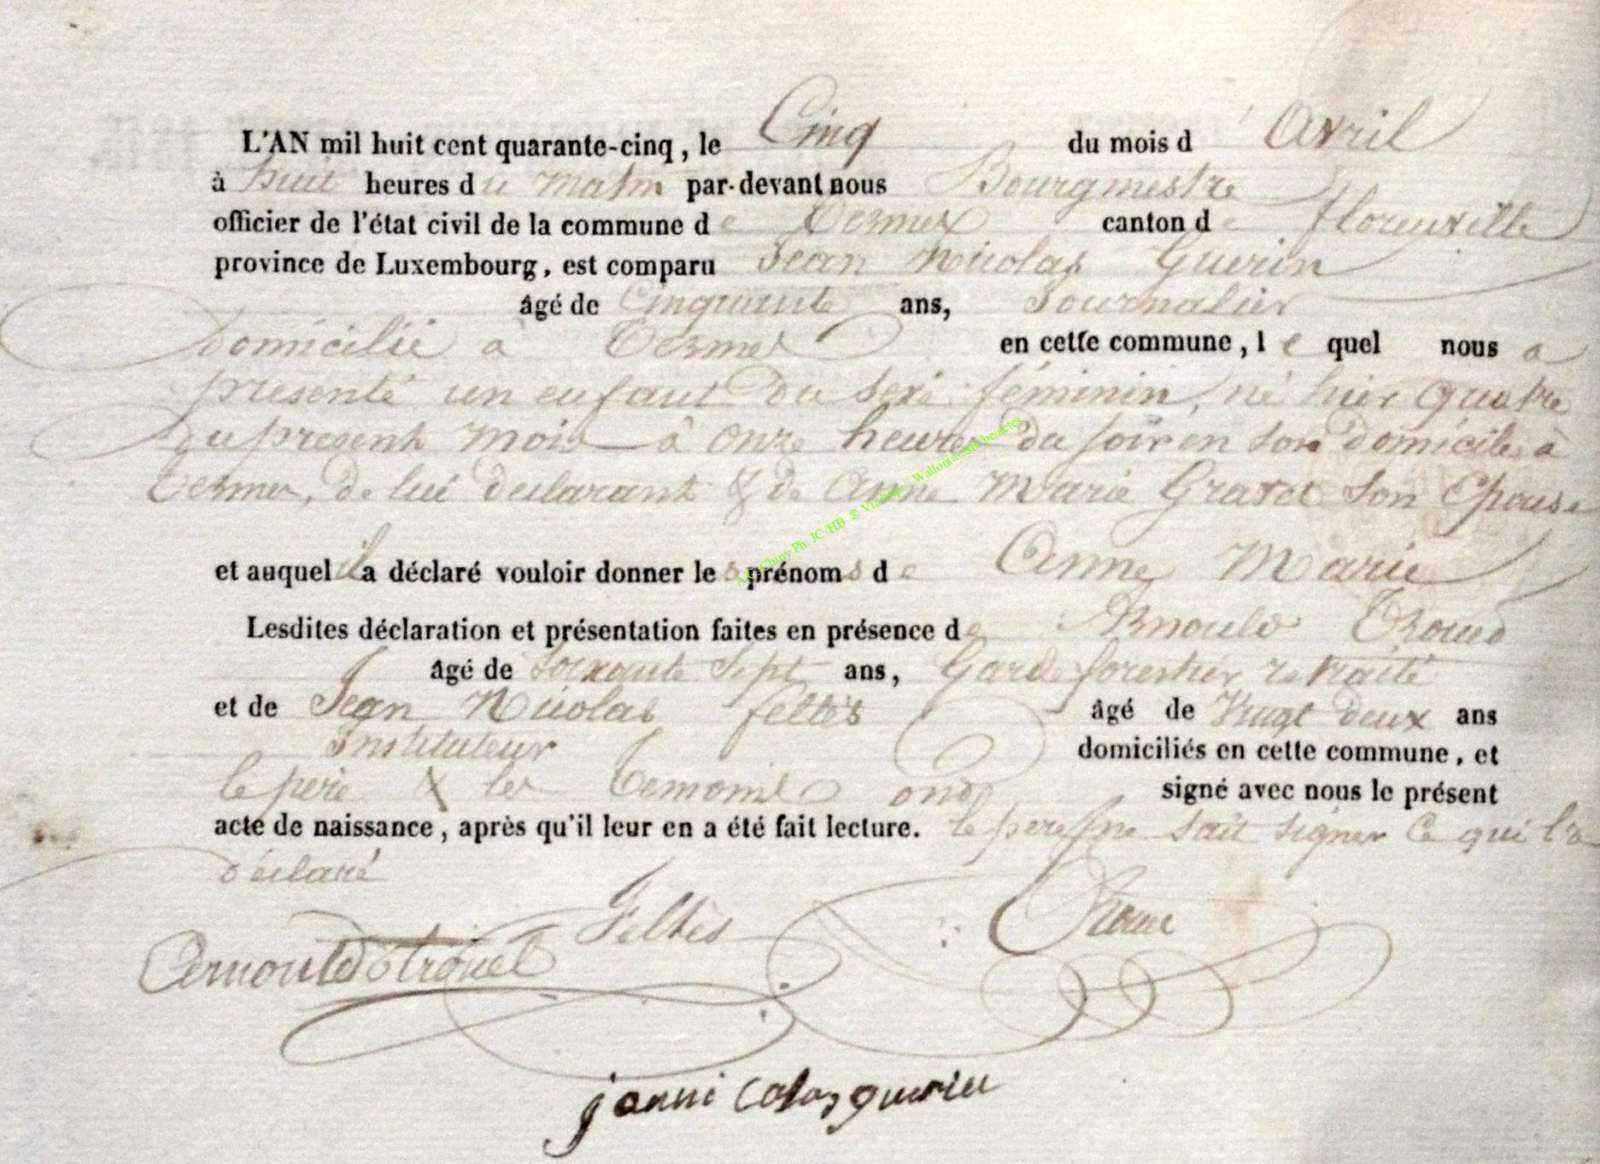 L'AN mil huit cent quarante-cinq, le Cinq du mois d' Avril
à huit heures du matin par-devant nous Bourgmestre
officier de l'état civil de la commune de Termes canton de florenville
province de Luxembourg, est comparu Jean Nicolas Guerin
âgé de Cinquante ans, Journalier
domicilié à Termes en cette commune, le quel nous a
presenté un enfant du sexe féminin, né hier quatre
du present mois à onze heures du soir en son domicile à
termes, de lui declarant & de Anne Marie Gravet son Epouse
et auquel il a déclaré vouloir donner les prénoms de Anne Marie
Lesdites déclaration et présentation faites en présence de Arnould
âgé de soixante sept ans, Garde forestier retraité
et de Jean Nicolas feltès âgé de Vingt deux ans
Instituteur domiciliés en cette commune, et
le père & les temoins ont signé avec nous le présent
acte de naissance, après qu'il leur en a été fait lecture. le père ne sait signer ce qu'il a
déclaré
Feltès
Arnould